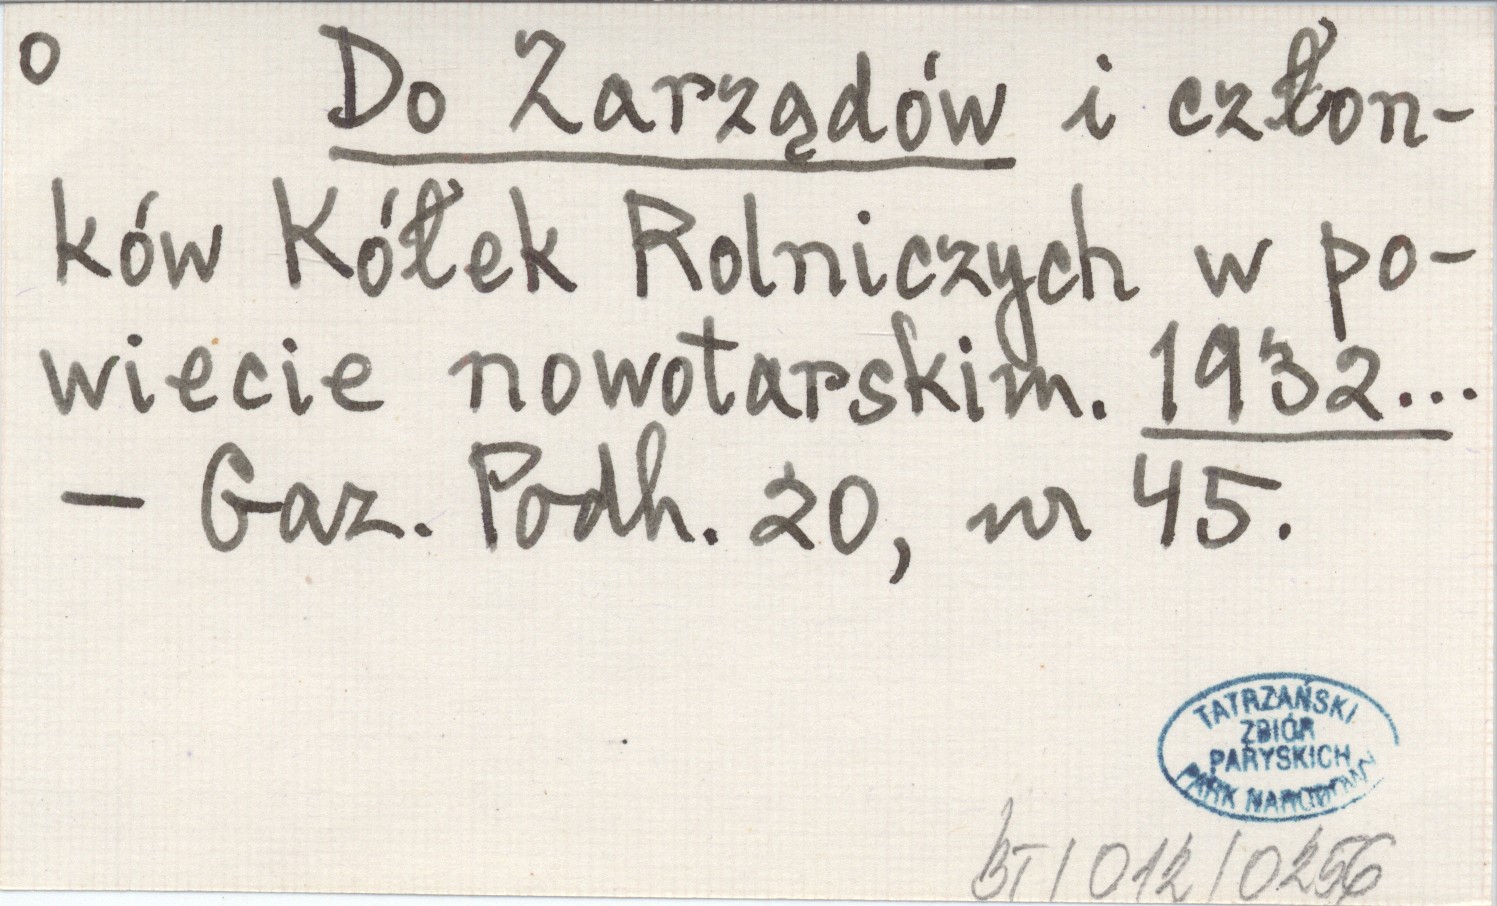 o Do Zarządów i człon-
ków Kółek Rolniczych w po-
wiecie nowotarskim. 1932...
— Gaz. Podh. 20, nr 45.
TATRZAŃSKI
ZBIÓR
PARYSKICH
PARK NARODOWY
BT/012/0256